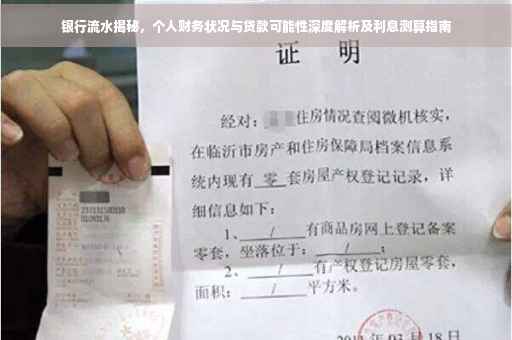 银行流水揭秘，个人财务状况与贷款可能性深度解析及利息测算指南
证 明
经对：住房情况查阅微机核实，
在临沂市房产和住房保障局档案信息系
统内现有 零 套房屋产权登记记录，详
细信息如下：
1、 / 有商品房网上登记备案
零套，坐落位于： / ；
2、 / 有产权登记房屋零套，
面积： / 平方米。